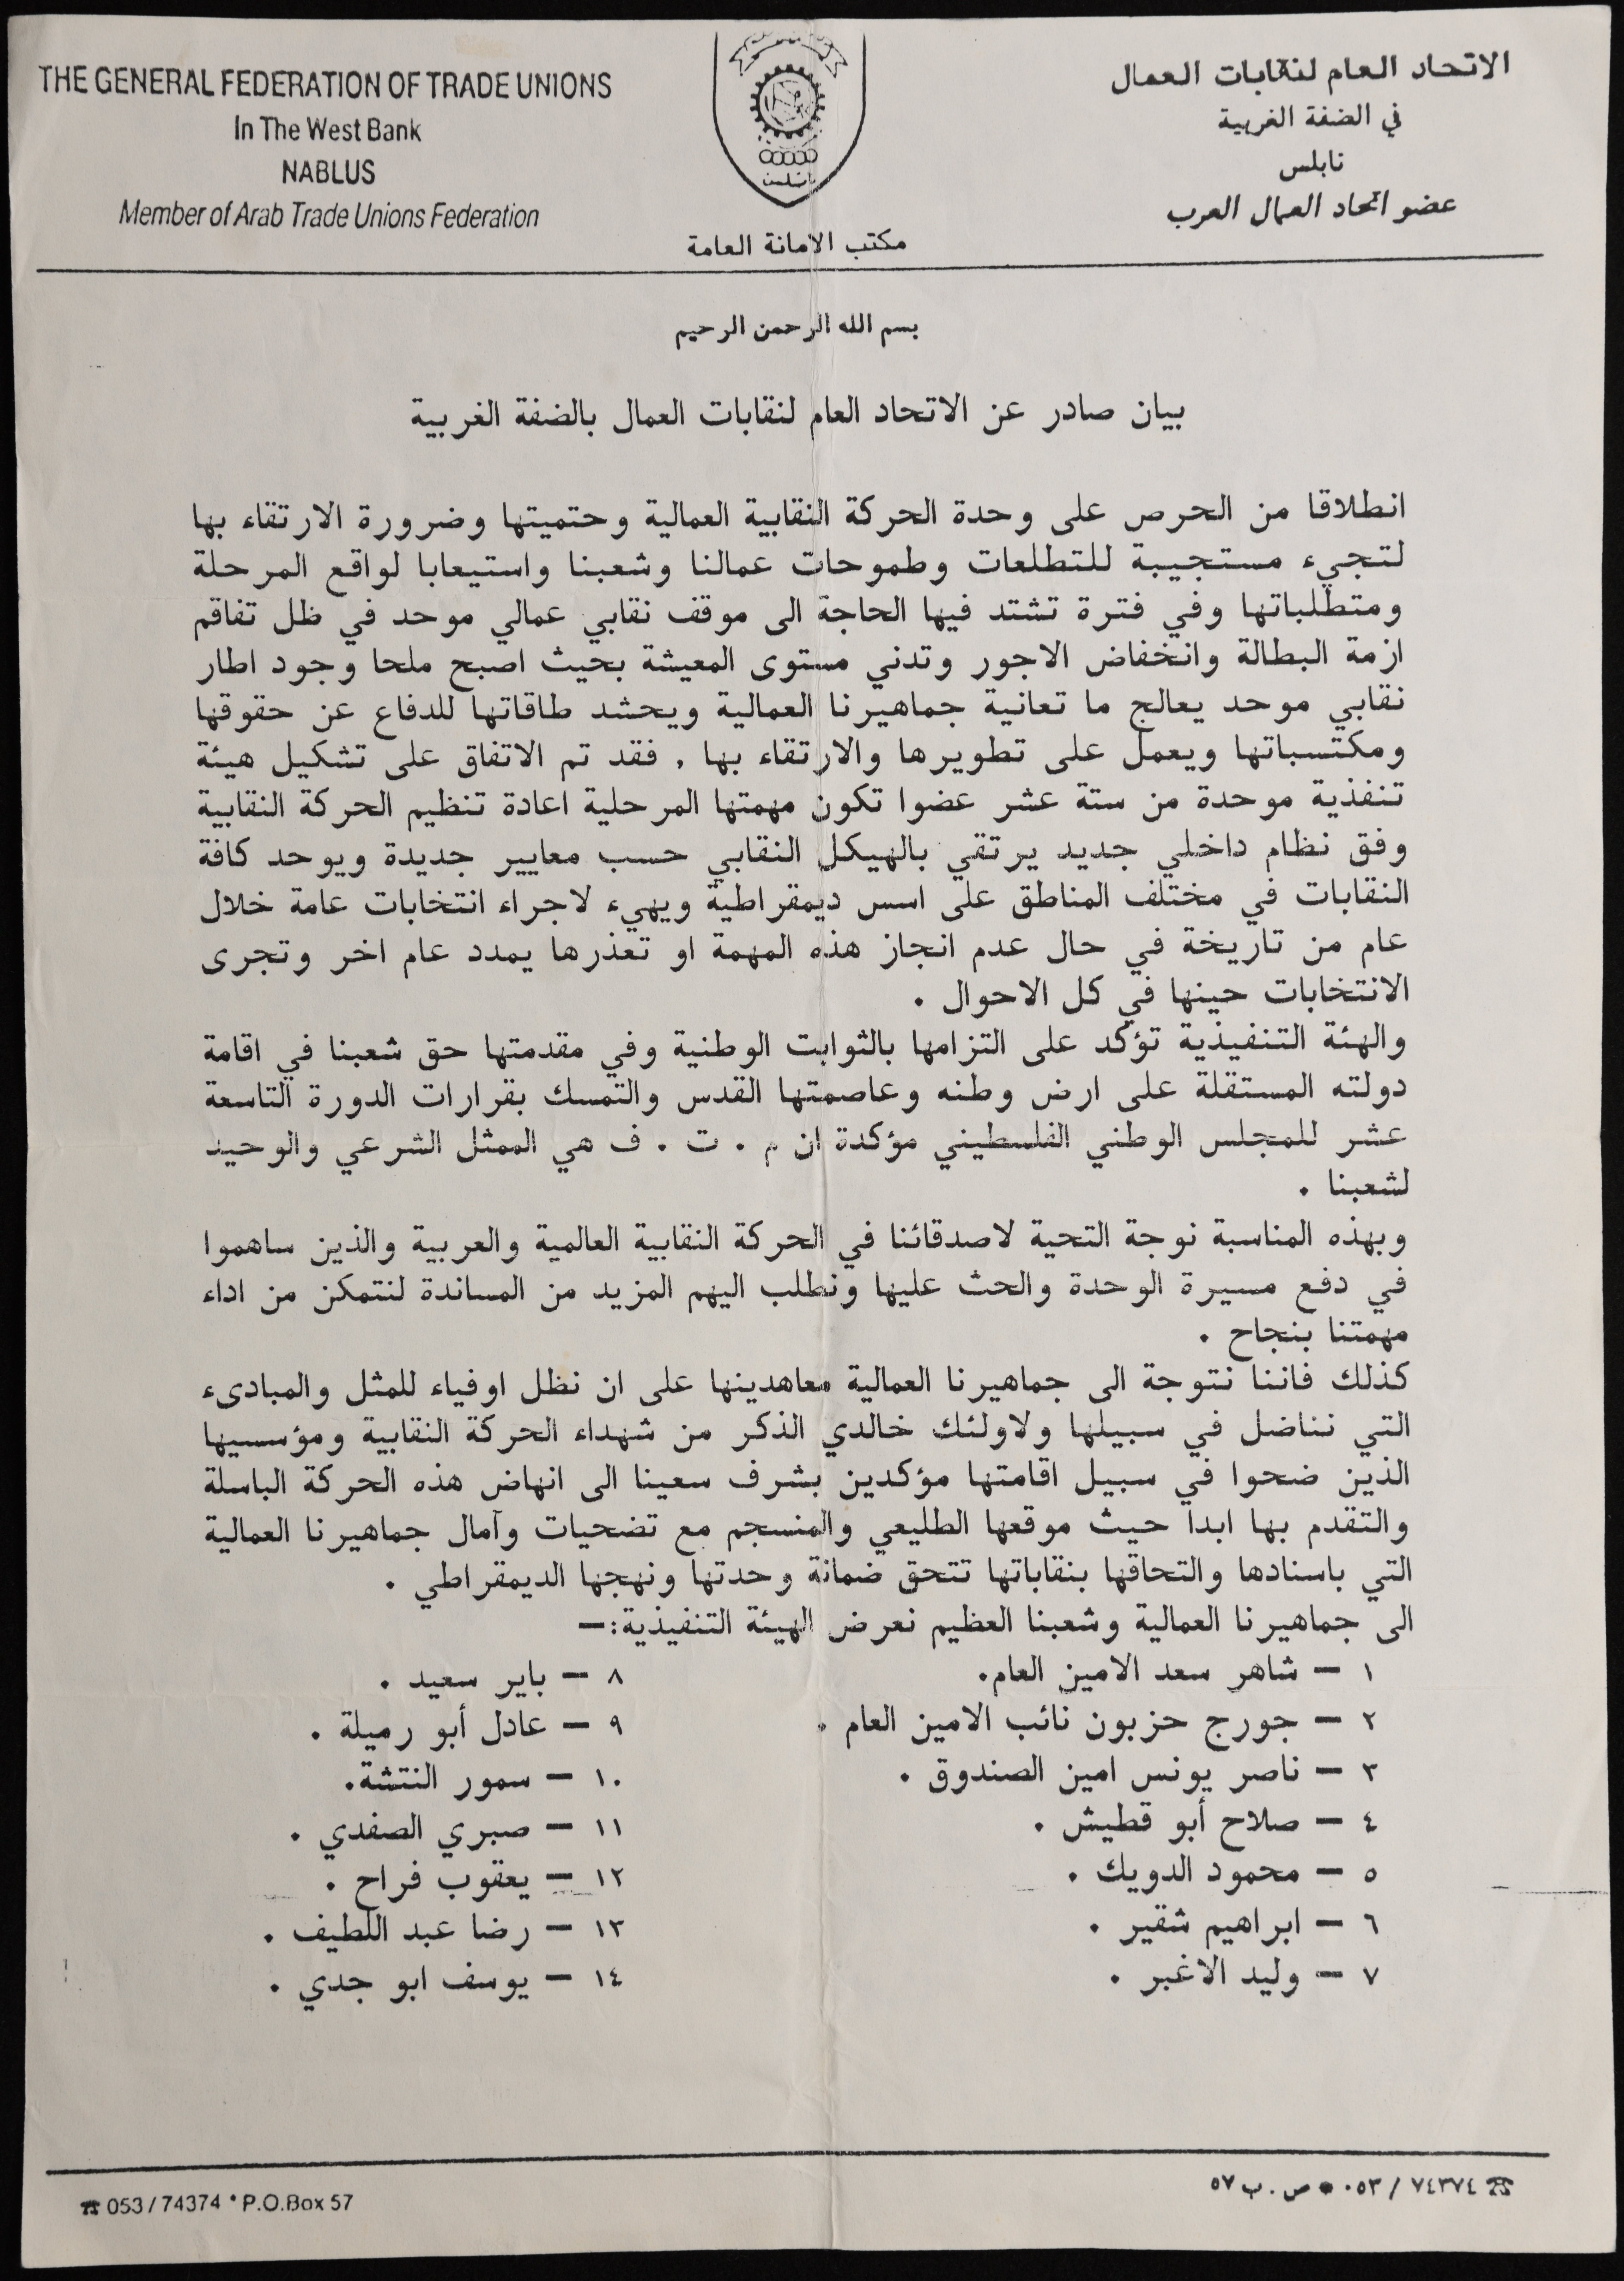 THE GENERAL FEDERATION OF TRADE UNIONS
In The West Bank
NABLUS
Member of Arab Trade Unions Federation
الاتحاد العام لنقابات العمال
في الضفة الغربية
نابلس
عضو اتحاد العمال العرب
نابلس
مكتب الامانة العامة
بسم الله الرحمن الرحيم
بيان صادر عن الاتحاد العام لنقابات العمال بالضفة الغربية
انطلاقا من الحرص على وحدة الحركة النقابية العمالية وحتميتها وضرورة الارتقاء بها
لتجيء مستجيبة للتطلعات وطموحات عمالنا وشعبنا واستيعابا لواقع المرحلة
ومتطلباتها وفي فترة تشتد فيها الحاجة الى موقف نقابي عمالي موحد في ظل تفاقم
ازمة البطالة وانخفاض الاجور وتدني مستوى المعيشة بحيث اصبح ملحا وجود اطار
نقابي موحد يعالج ما تعانية جماهيرنا العمالية ويحشد طاقاتها للدفاع عن حقوقها
ومكتسباتها ويعمل على تطويرها والارتقاء بها , فقد تم الاتفاق على تشكيل هيئة
تنفذية موحدة من ستة عشر عضوا تكون مهمتها المرحلية اعادة تنظيم الحركة النقابية
وفق نظام داخلي جديد يرتقي بالهيكل النقابي حسب معايير جديدة ويوحد كافة
النقابات في مختلف المناطق على اسس ديمقراطية ويهيء لاجراء انتخابات عامة خلال
عام من تاريخة في حال عدم انجاز هذه المهمة او تعذرها يمدد عام اخر وتجرى
الانتخابات حينها في كل الاحوال .
والهئة التنفيذية تؤكد على التزامها بالثوابت الوطنية وفي مقدمتها حق شعبنا في اقامة
دولته المستقلة على ارض وطنه وعاصمتها القدس والتمسك بقرارات الدورة التاسعة
عشر للمجلس الوطني الفلسطيني مؤكدة ان م . ت . ف هي الممثل الشرعي والوحيد
لشعبنا .
وبهذه المناسبة نوجة التحية لاصدقائنا في الحركة النقابية العالمية والعربية والذين ساهموا
في دفع مسيرة الوحدة والحث عليها ونطلب اليهم المزيد من المساندة لنتمكن من اداء
مهمتنا بنجاح .
كذلك فاننا نتوجة الى جماهيرنا العمالية معاهدينها على ان نظل اوفياء للمثل والمبادىء
التي نناضل في سبيلها ولاولئك خالدي الذكر من شهداء الحركة النقابية ومؤسسيها
الذين ضحوا في سبيل اقامتها مؤكدين بشرف سعينا الى انهاض هذه الحركة الباسلة
والتقدم بها ابدا حيث موقعها الطليعي والمنسجم مع تضحيات وآمال جماهيرنا العمالية
التي باسنادها والتحاقها بنقاباتها تتحق ضمانة وحدتها ونهجها الديمقراطي .
الى جماهيرنا العمالية وشعبنا العظيم نعرض الهيئة التنفيذية:—
١ — شاهر سعد الامين العام.
٢ — جورج حزبون نائب الامين العام .
٣ — ناصر يونس امين الصندوق .
٤ — صلاح أبو قطيش .
٥ — محمود الدويك .
٦ — ابراهيم شقير .
٧ — وليد الاغبر .
٨ — باير سعيد .
٩ — عادل أبو رميلة .
١٠ — سمور النتشة.
١١ — صبري الصفدي .
١٢ — يعقوب فراح .
١٣ — رضا عبد اللطيف .
١٤ — يوسف ابو جدي .
☎ 053 / 74374 * P.O.Box 57
☎ ٧٤٣٧٤ / ٠٥٣ * ص . ب ٥٧